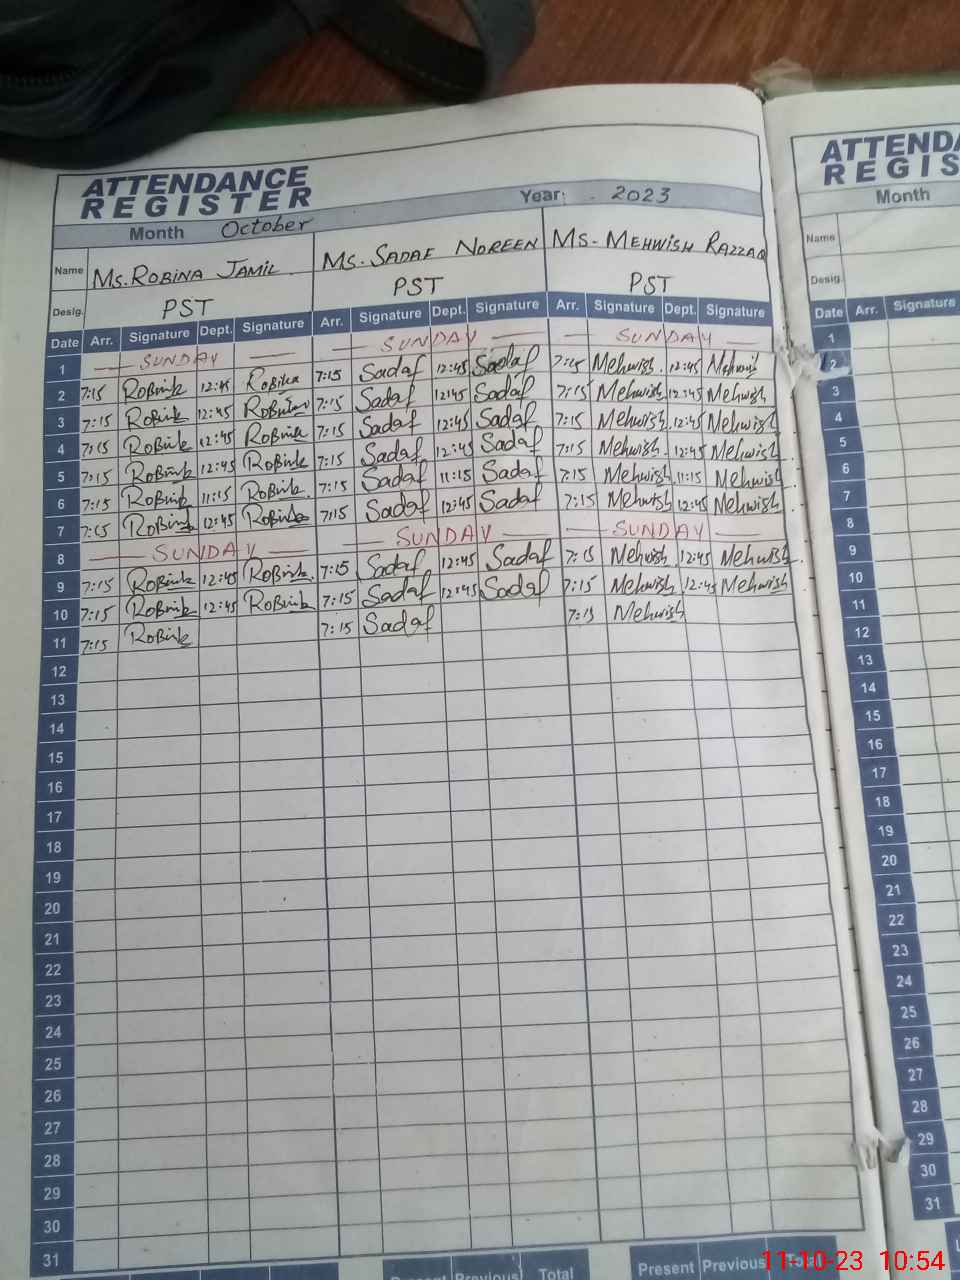 ATTENDANCE
REGISTER
Month October Year: 2023
Name Ms. ROBINA JAMIL Ms. SADAF NOREEN Ms. MEHWISH RAZZAQ
Desig. PST PST PST
Date Arr. Signature Dept. Signature Arr. Signature Dept. Signature Arr. Signature Dept. Signature
1 SUNDAY SUNDAY SUNDAY
2 7:15 Robina 12:45 Robina 7:15 Sadaf 12:45 Sadaf 7:15 Mehwish 12:45 Mehwish
3 7:15 Robina 12:45 Robina 7:15 Sadaf 12:45 Sadaf 7:15 Mehwish 12:45 Mehwish
4 7:15 Robina 12:45 Robina 7:15 Sadaf 12:45 Sadaf 7:15 Mehwish 12:45 Mehwish
5 7:15 Robina 12:45 Robina 7:15 Sadaf 12:45 Sadaf 7:15 Mehwish 12:45 Mehwish
6 7:15 Robina 11:15 Robina 7:15 Sadaf 11:15 Sadaf 7:15 Mehwish 11:15 Mehwish
7 7:15 Robina 12:45 Robina 7:15 Sadaf 12:45 Sadaf 7:15 Mehwish 12:45 Mehwish
8 SUNDAY SUNDAY SUNDAY
9 7:15 Robina 12:45 Robina 7:15 Sadaf 12:45 Sadaf 7:15 Mehwish 12:45 Mehwish
10 7:15 Robina 12:45 Robina 7:15 Sadaf 12:45 Sadaf 7:15 Mehwish 12:45 Mehwish
11 7:15 Robina 7:15 Sadaf 7:15 Mehwish
12
13
14
15
16
17
18
19
20
21
22
23
24
25
26
27
28
29
30
31
Present Previous Total Present Previous Total
ATTENDA
REGIS
Month
Name
Desig.
Date Arr. Signature
1
2
3
4
5
6
7
8
9
10
11
12
13
14
15
16
17
18
19
20
21
22
23
24
25
26
27
28
29
30
31
11-10-23 10:54